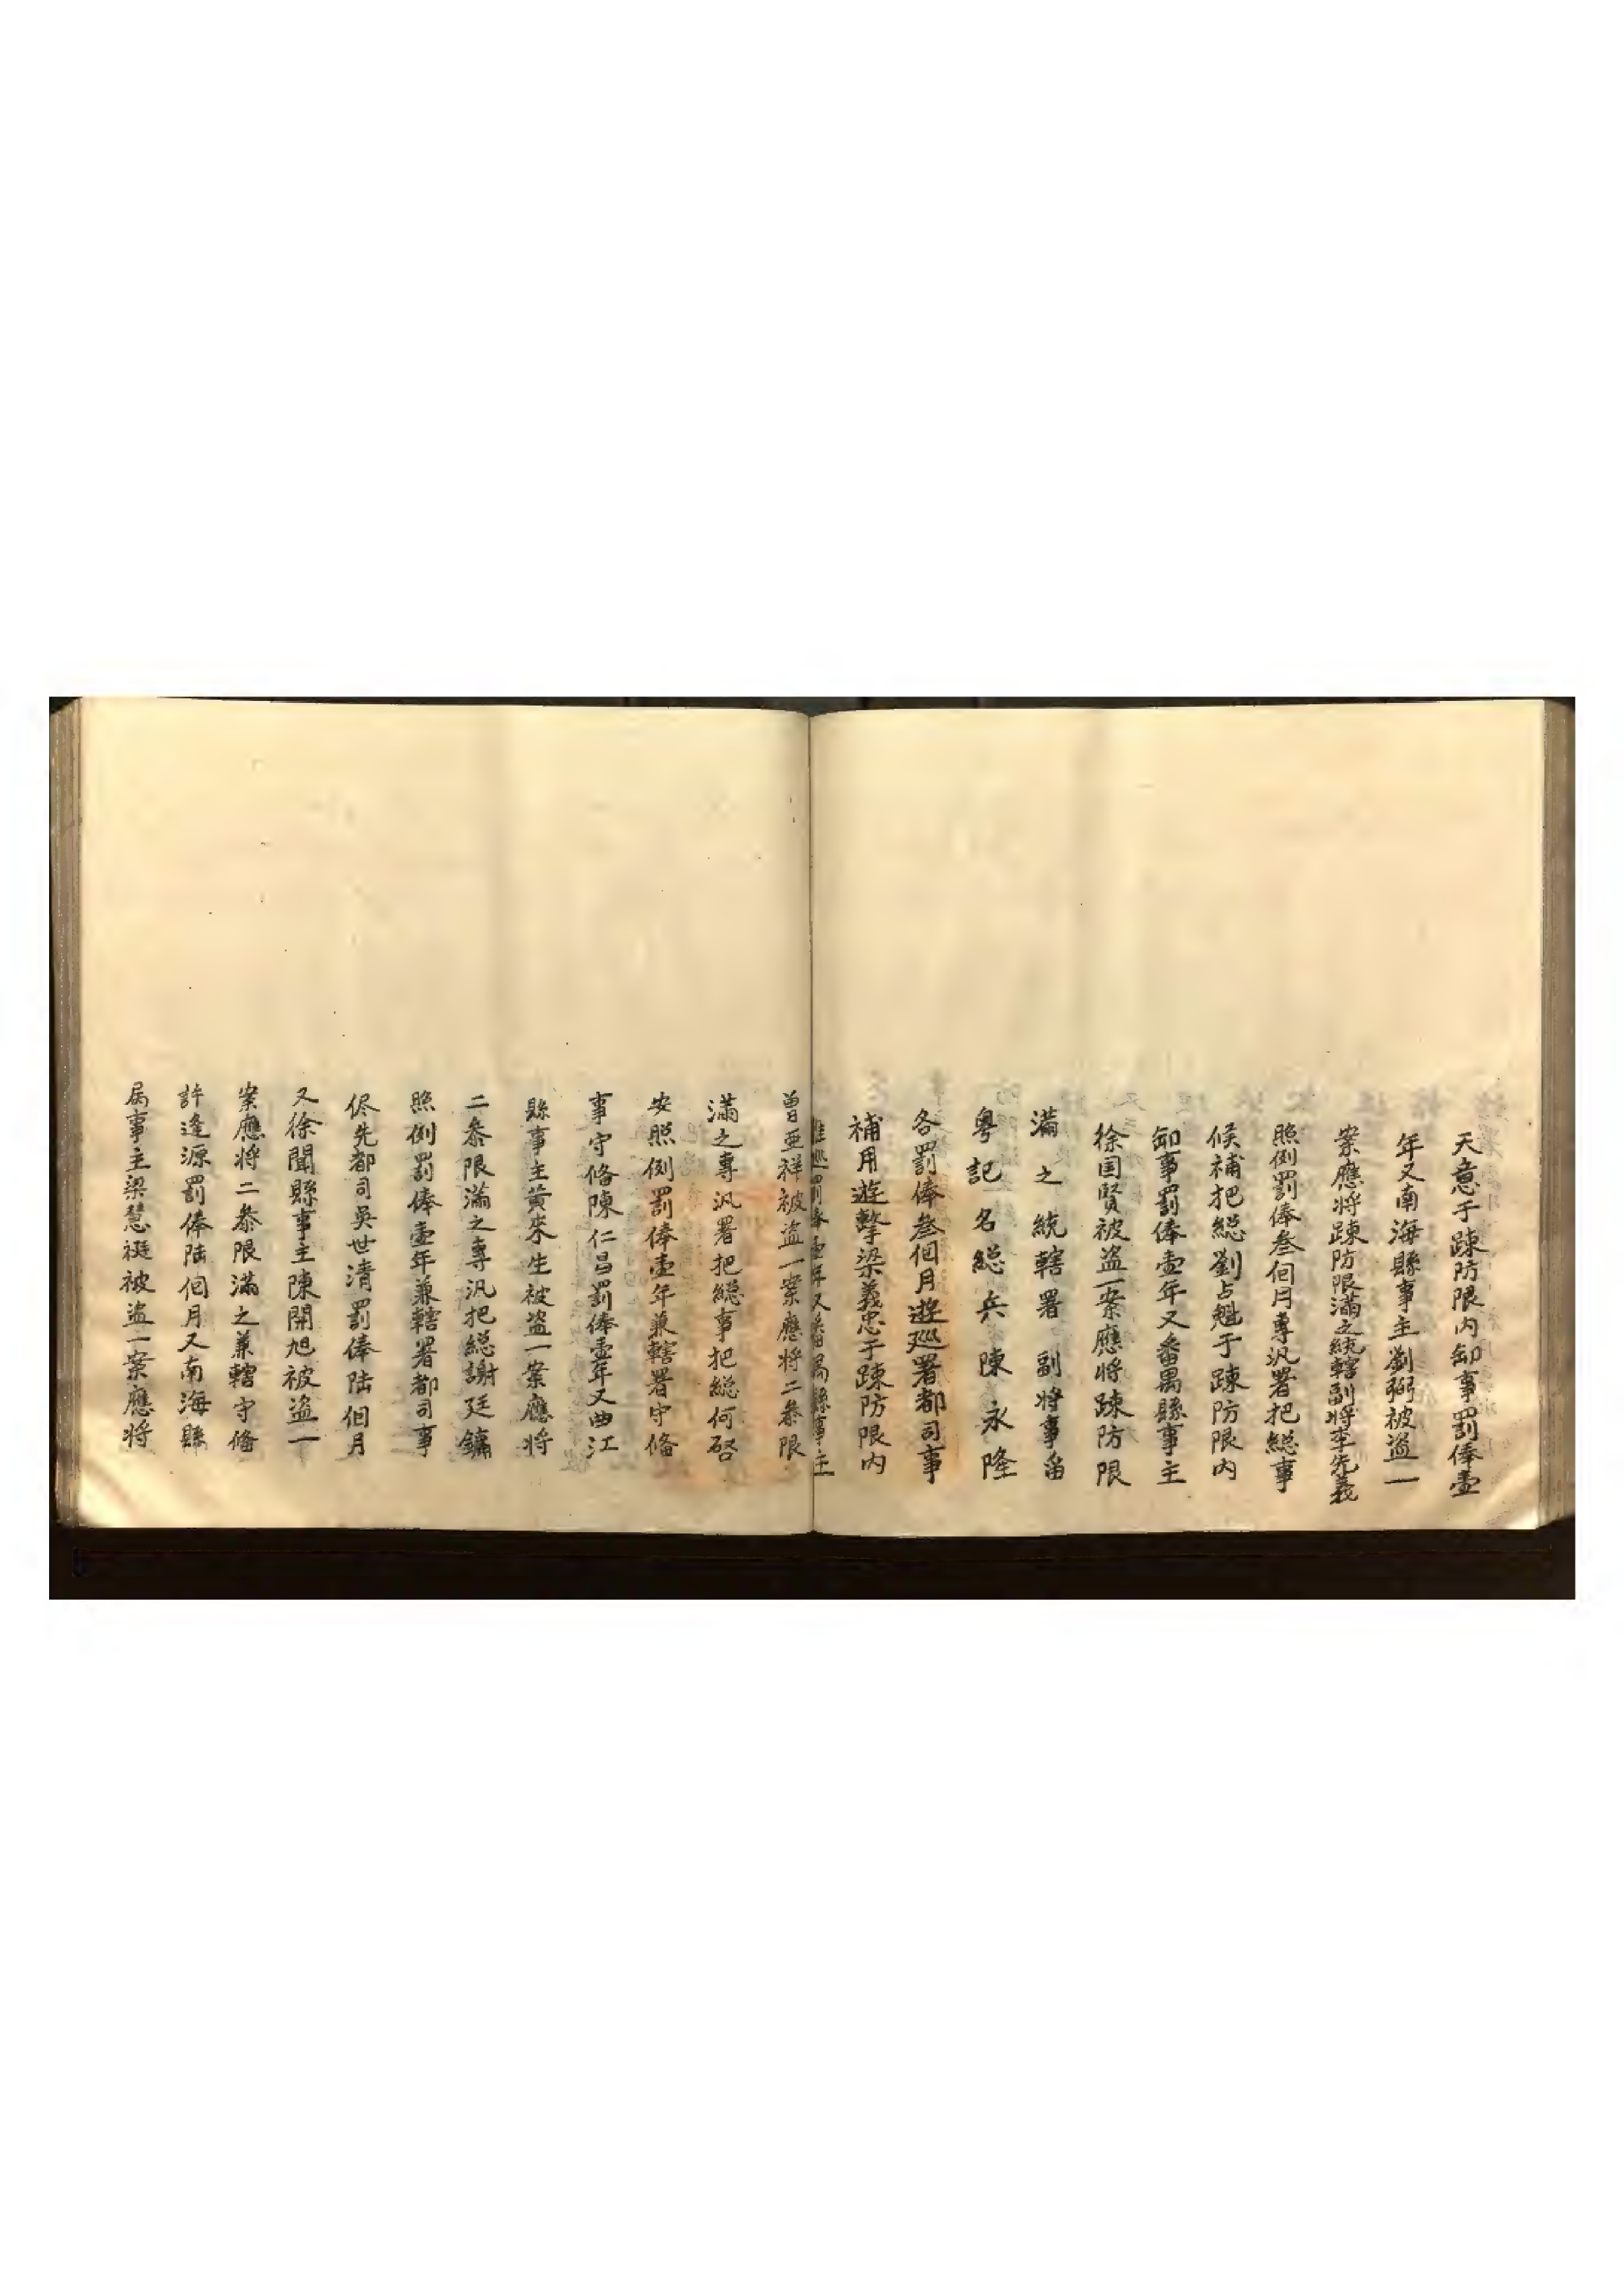 天意于踈防限內卸事罰俸壹
年又南海縣事主劉弼被盗一
案應將踈防限滿之統轄副將李先義
照例罰俸叁佪月專汛署把総事
候補把総劉占魁于踈防限內
卸事罰俸壹年又番禺縣事主
徐国賢被盗一案應將踈防限
滿之統轄署副將事畱
粵記名総兵陳永隆
各罰俸叁佪月遊廵署都司事
補用遊擊梁義忠于踈防限內
罰俸壹年又番禺縣事主
曽亜祥被盗一案應將二叅限
滿之專汛署把総事把総何啓
安照例罰俸壹年兼轄署守俻
事守俻陳仁昌罰俸壹年又曲江
縣事主黄來生被盗一案應將
二叅限滿之專汛把総謝廷鏞
照例罰俸壹年兼轄署都司事
侭先都司吳世清罰俸陆佪月
又徐聞縣事主陳開旭被盗一
案應將二叅限滿之兼轄守俻
許逢源罰俸陆佪月又南海縣
屆事主梁慧被盗一案應將